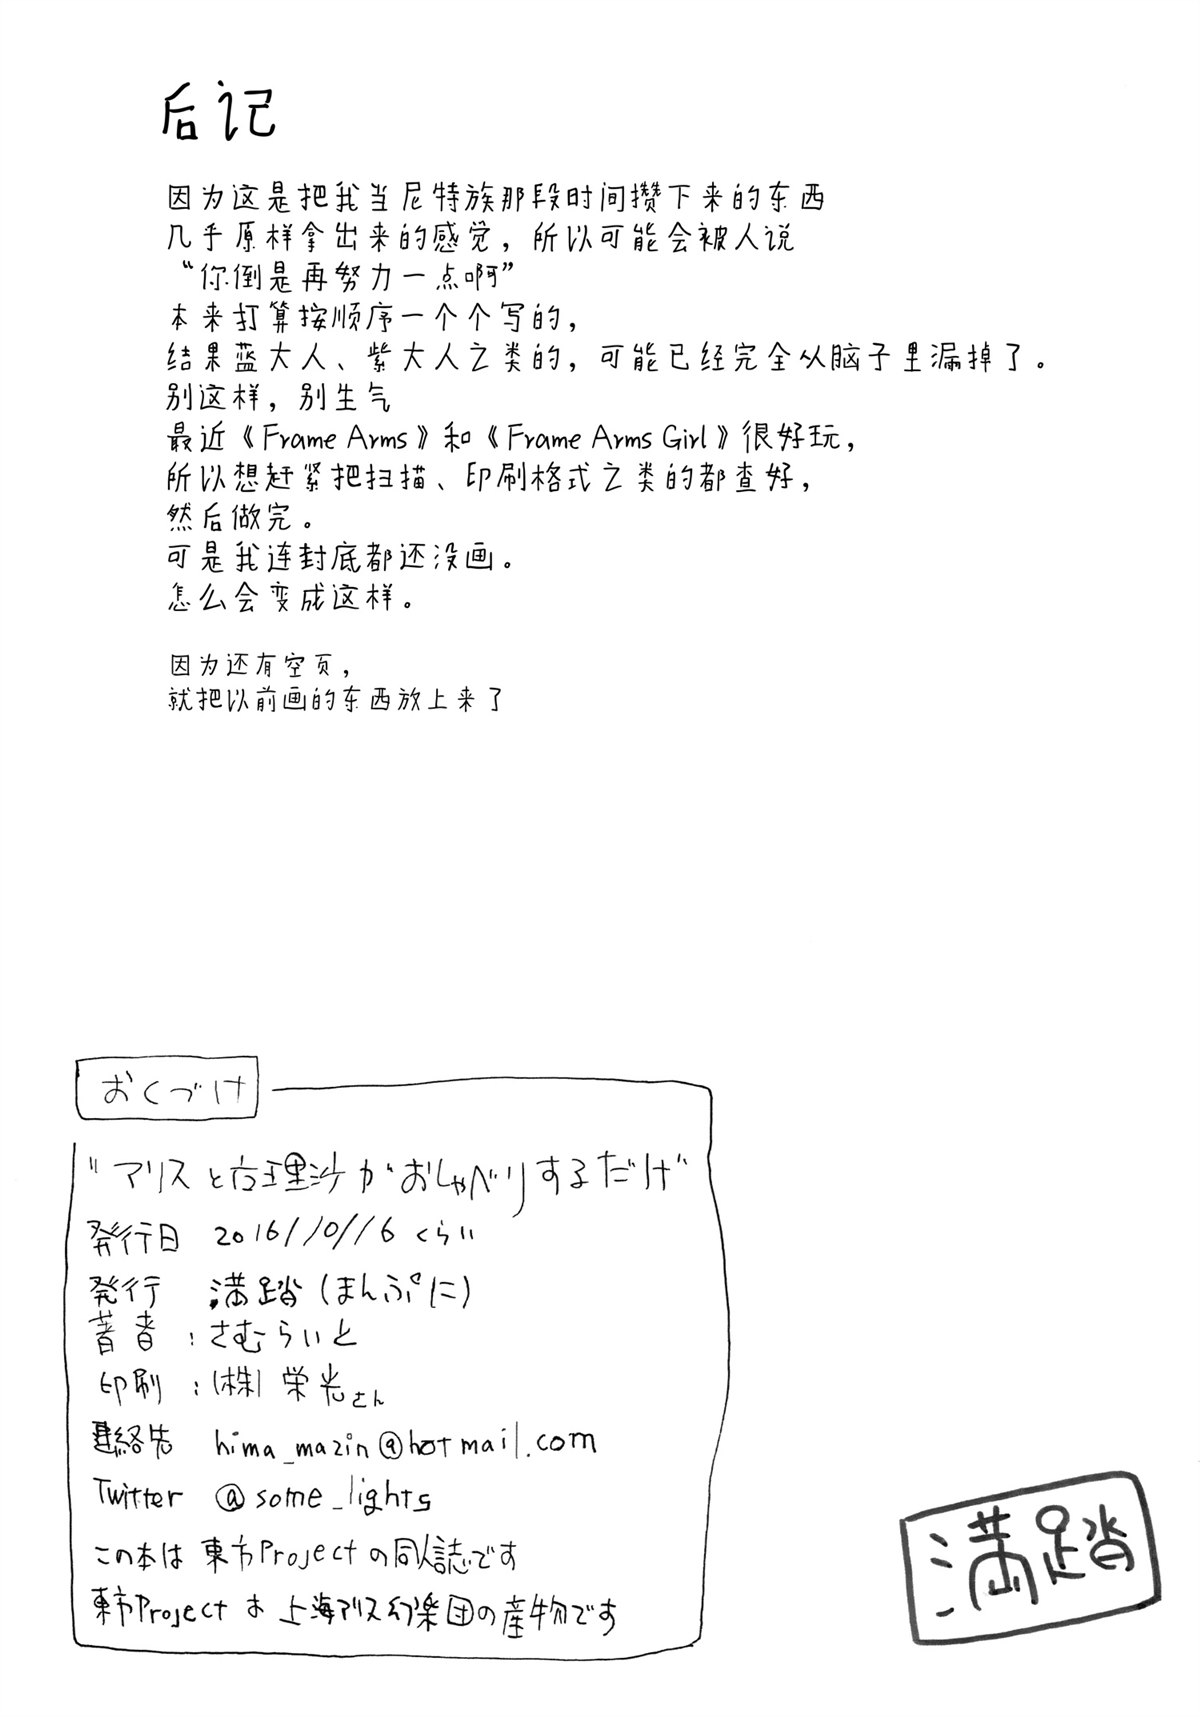 后记
因为这是把我当尼特族那段时间攒下来的东西
几乎原样拿出来的感觉，所以可能会被人说
“你倒是再努力一点啊”
本来打算按顺序一个个写的，
结果蓝大人、紫大人之类的，可能已经完全从脑子里漏掉了。
别这样，别生气
最近《Frame Arms》和《Frame Arms Girl》很好玩，
所以想赶紧把扫描、印刷格式之类的都查好，
然后做完。
可是我连封底都还没画。
怎么会变成这样。
因为还有空页，
就把以前画的东西放上来了
おくづけ
"アリスと广理沙がおしゃべりするだけ"
発行日 2016/10/16くらい
発行 満踏(まんぷに)
著者:さむらいと
印刷:(株)栄光さん
連絡先 hima_mazin@hotmail.com
Twitter @some_lights
この本は東方Projectの同人誌です
東方Projectは上海アリス幻楽団の産物です
満踏